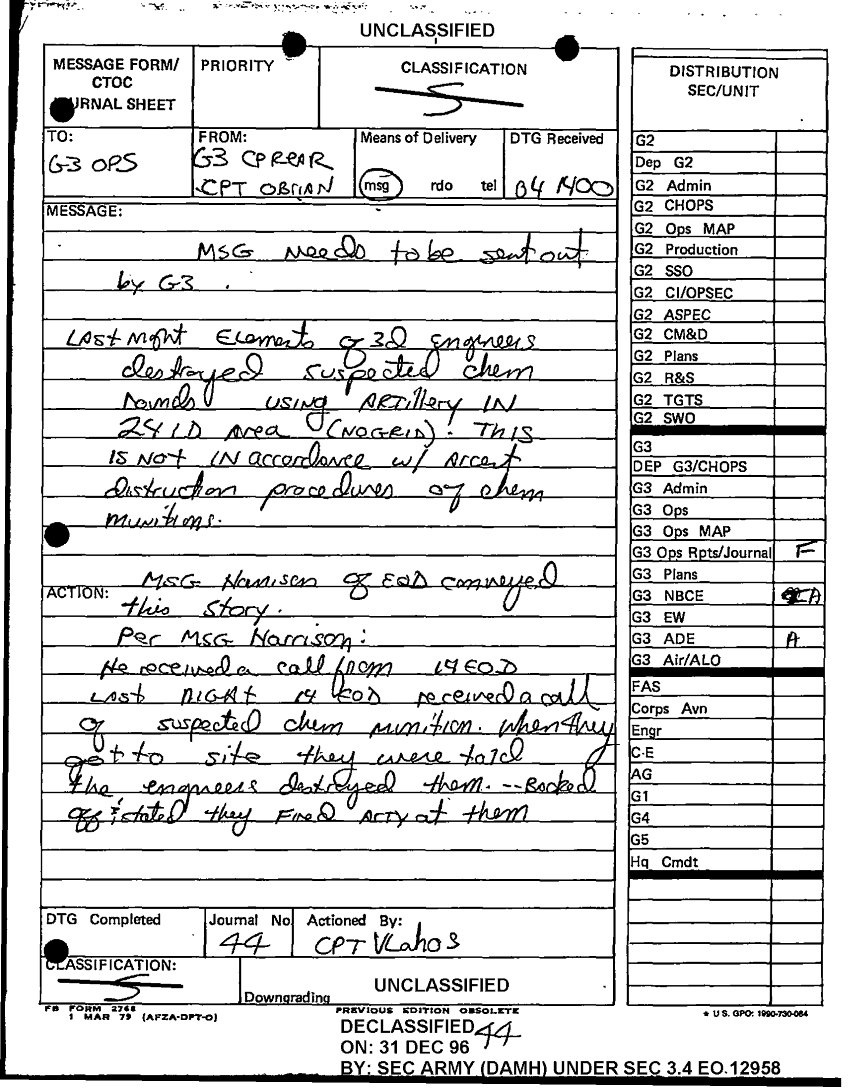 UNCLASSIFIED
MESSAGE FORM/
CTOC
JOURNAL SHEET
PRIORITY
CLASSIFICATION
S
TO:
G3 OPS
FROM:
G3 CP REAR
CPT OBRIAN
Means of Delivery
msg rdo tel
DTG Received
041400
MESSAGE:
MSG Needs to be sent out
by G3 .
LAST Night Elements of 3d engineers
destroyed suspected chem
rounds using ARTillery IN
24 ID Area (NO GRID). THIS
IS NOT IN accordance w/ Arcent
distruction procedures of chem
munitions.
ACTION:
MSG Harrison of EOD conveyed
this story.
Per MSG Harrison:
He received a call from 14 EOD
Last Night 14 EOD received a call
of suspected chem munition. when they
got to site they were told
the engineers destroyed them. -- Backed
off & stated they Fired Arty at them
DTG Completed
Journal No.
44
Actioned By:
CPT Vlahos
CLASSIFICATION:
S
Downgrading
UNCLASSIFIED
FB FORM 2768
1 MAR 79 (AFZA-DPT-O)
PREVIOUS EDITION OBSOLETE
DECLASSIFIED 44
ON: 31 DEC 96
BY: SEC ARMY (DAMH) UNDER SEC 3.4 EO.12958
DISTRIBUTION
SEC/UNIT
G2
Dep G2
G2 Admin
G2 CHOPS
G2 Ops MAP
G2 Production
G2 SSO
G2 CI/OPSEC
G2 ASPEC
G2 CM&D
G2 Plans
G2 R&S
G2 TGTS
G2 SWO
G3
DEP G3/CHOPS
G3 Admin
G3 Ops
G3 Ops MAP
G3 Ops Rpts/Journal F
G3 Plans
G3 NBCE A
G3 EW
G3 ADE A
G3 Air/ALO
FAS
Corps Avn
Engr
C-E
AG
G1
G4
G5
Hq Cmdt
* U S. GPO: 1990-730-084